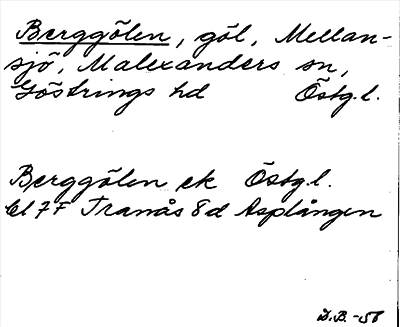 Berggölen, göl, Mellan-
sjö, Malexanders sn,
Göstrings hd Östg.l.
Berggölen ek Östgl.
bl 7F Tranås 8d Asplången
D.B. -58